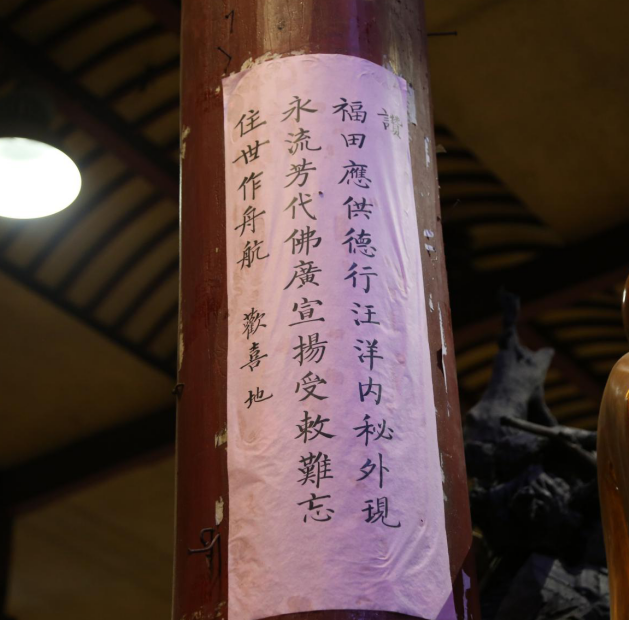 讚
福田應供德行汪洋内秘外現
永流芳代佛廣宣揚受敕難忘
住世作舟航 歡喜地